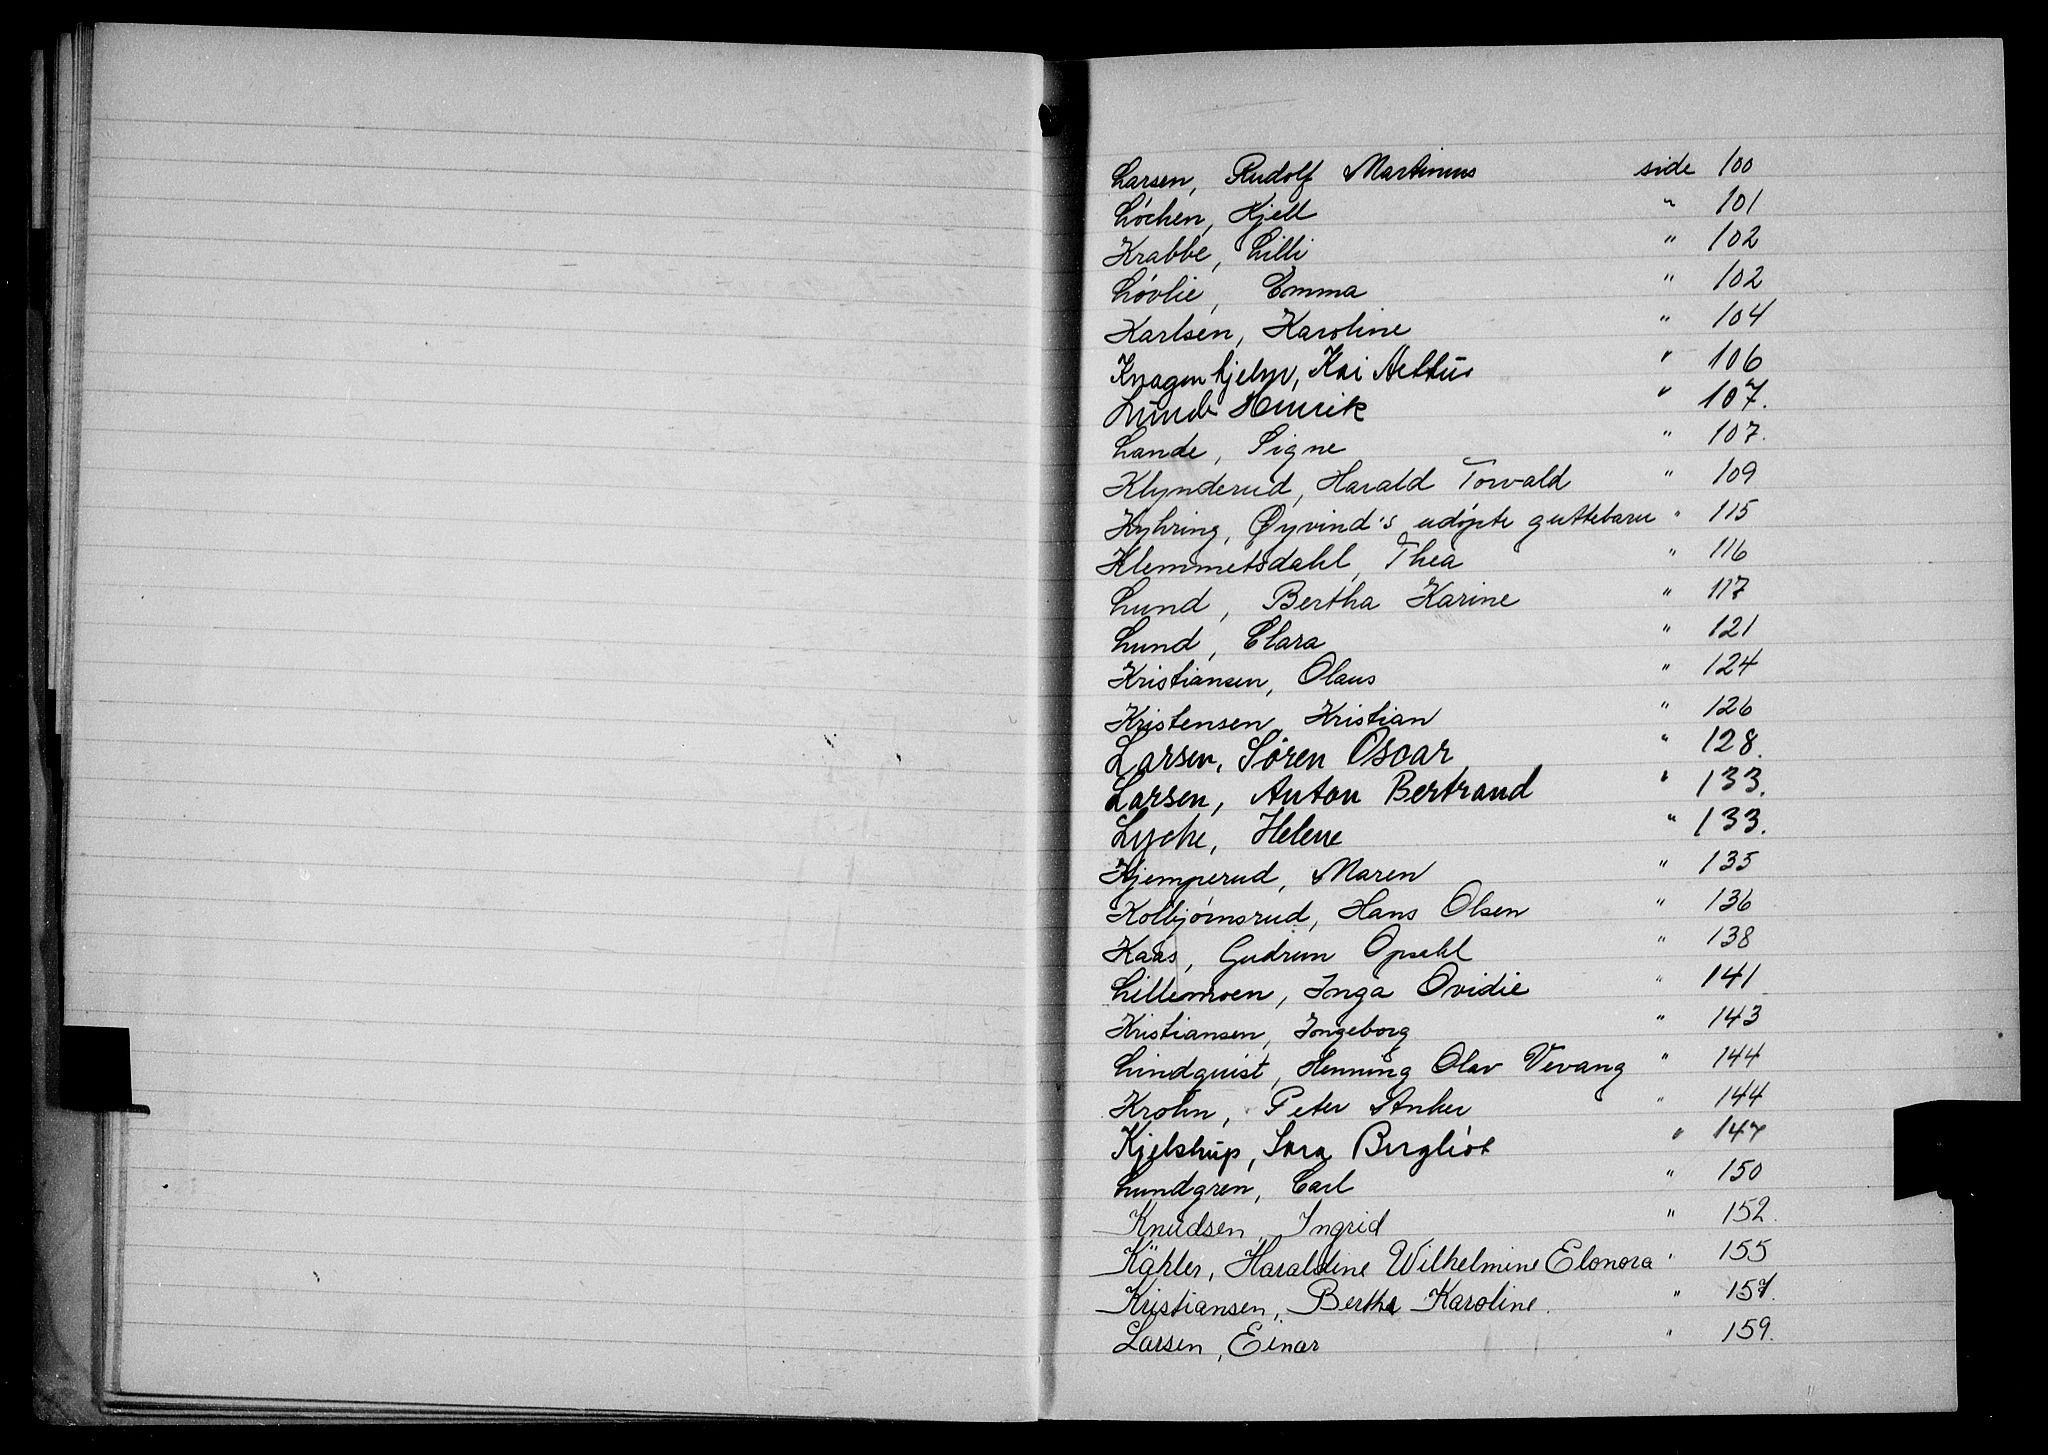 Larsen, Rudolf Martinius side 100
Løchen, Kjell " 101
Krabbe, Lilli " 102
Løvlie, Emma " 102
Karlsen, Karoline " 104
Knagenhjelm, Kai " 106
Lund Henrik " 107.
Lande, Signe " 107.
Klynderud, Harald Torvald " 109
Kyhring, Øyvind's udøpte guttebarn " 115
Klemmetsdahl, Thea " 116
Lund, Bertha Karine " 117
Lund, Clara " 121
Kristiansen, Olaus " 124
Kristensen, Kristian " 126
Larsen, Sören Oscar " 128.
Larsen, Anton Bertrand " 133.
Lyche, Helene " 133.
Kjemperud, Maren " 135
Kolbjørnsrud, Hans Olsen " 136
Kaas, Gudrun Opsahl " 138
Lillemoen, Inga Ovidie " 141
Kristiansen, Ingeborg " 143
Lindquist, Henning Olav Vevang " 144
Krohn, Peter Anker " 144
Kjelstrup, Sara Bergliot " 147
Lundgren, Carl " 150
Knudsen, Ingrid " 152.
Kähler, Haraldine Wilhelmine Elonora " 155
Kristiansen, Bertha Karoline. " 157.
Larsen, Einar " 159.